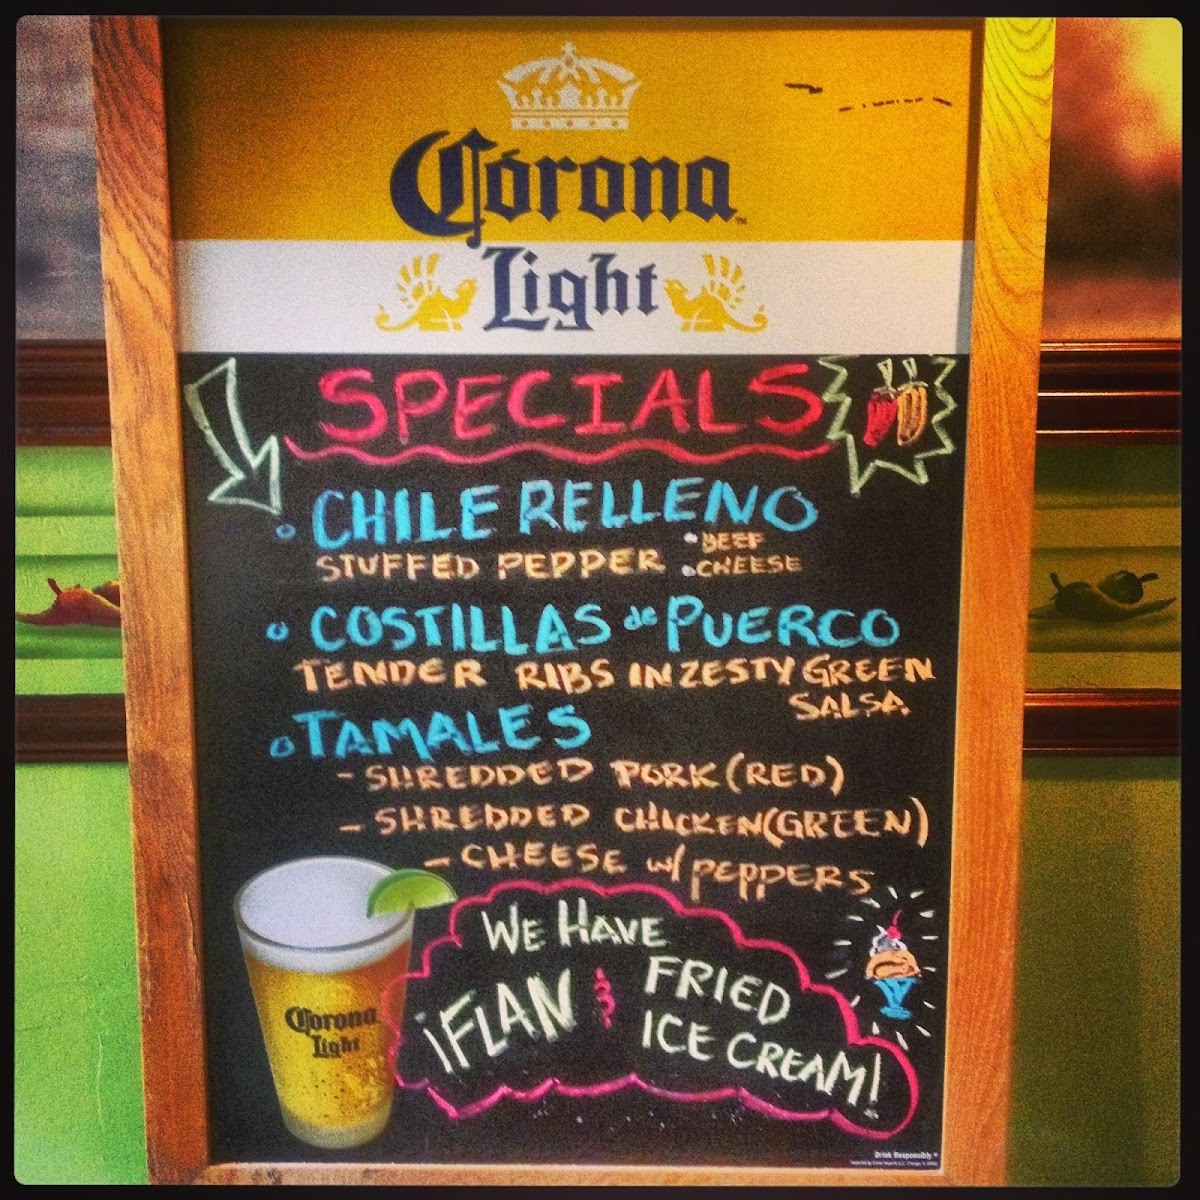 Corona
Light
SPECIALS
CHILE RELLENO
STUFFED PEPPER
• BEEF
• CHEESE
COSTILLAS de PUERCO
TENDER RIBS IN ZESTY GREEN
SALSA
TAMALES
- SHREDDED PORK (RED)
- SHREDDED CHICKEN (GREEN)
- CHEESE w/ PEPPERS
WE HAVE
¡FLAN &
FRIED
ICE CREAM!
Corona
Light
Drink Responsibly